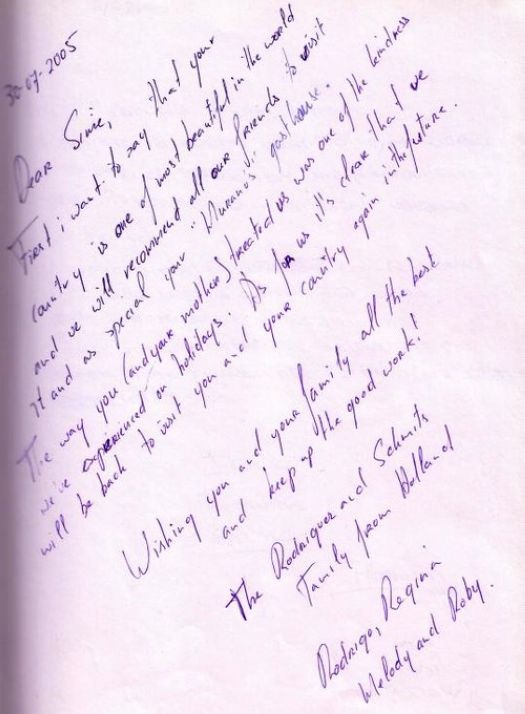 30-07-2005
Dear Sime,
First i want to say that your
country is one of most beautiful in the world
and we will recommend all our friends to visit
it and as special your "Murano's" gasthouse.
The way you (and your mother) treated us was one of the kindness
we've experienced on holidays. As for us it's cleare that we
will be back to visit you and your country again in the future.
Wishing you and your family all the best
and keep up the good work!
The Rodriguez and Schmits
Family from Holland
Rodrigo, Regina
Melody and Roby.